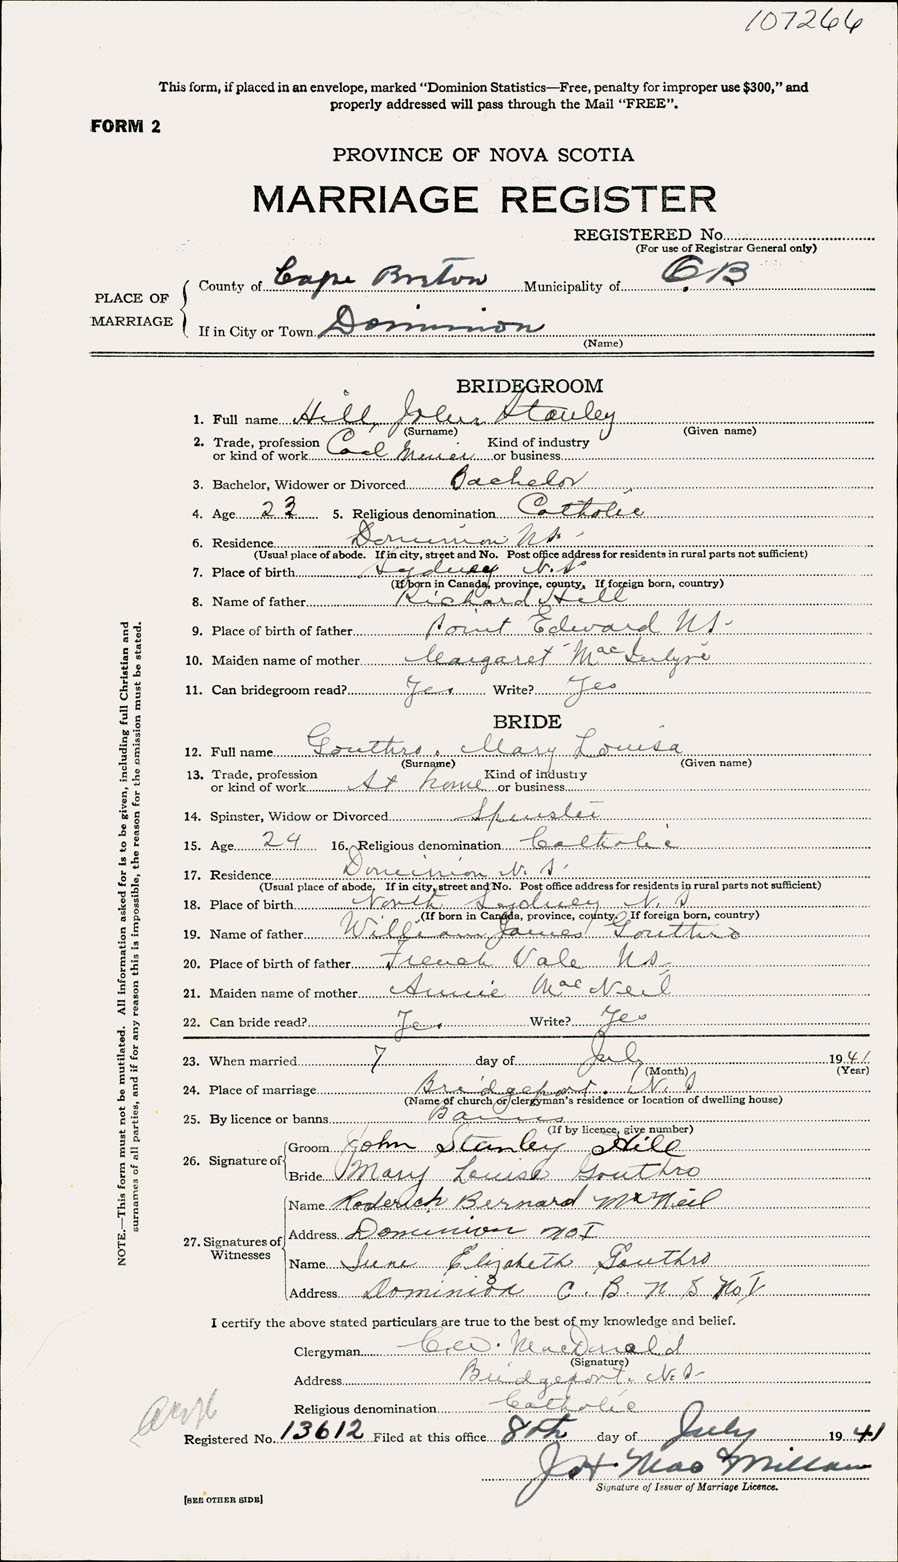 107266
This form, if placed in an envelope, marked “Dominion Statistics—Free, penalty for improper use $300,” and
properly addressed will pass through the Mail “FREE”.
FORM 2
PROVINCE OF NOVA SCOTIA
MARRIAGE REGISTER
REGISTERED No.
(For use of Registrar General only)
PLACE OF MARRIAGE
County of Cape Breton Municipality of C.B
If in City or Town Dominion
(Name)
BRIDEGROOM
1. Full name Hill, John Stanley
(Surname) (Given name)
2. Trade, profession Kind of industry
or kind of work Coal Miner or business
3. Bachelor, Widower or Divorced Bachelor
4. Age 23 5. Religious denomination Catholic
6. Residence Dominion N.S.
(Usual place of abode. If in city, street and No. Post office address for residents in rural parts not sufficient)
7. Place of birth Sydney N.S
(If born in Canada, province, county. If foreign born, country)
8. Name of father Richard Hill
9. Place of birth of father Point Edward NS-
10. Maiden name of mother Margaret MacIntyre
11. Can bridegroom read? Yes Write? Yes
BRIDE
12. Full name Gouthro. Mary Louisa
(Surname) (Given name)
13. Trade, profession Kind of industry
or kind of work At home or business
14. Spinster, Widow or Divorced Spinster
15. Age 24 16. Religious denomination Catholic
17. Residence Dominion N.S.
(Usual place of abode. If in city, street and No. Post office address for residents in rural parts not sufficient)
18. Place of birth North Sydney N.S
(If born in Canada, province, county. If foreign born, country)
19. Name of father William James Gouthro
20. Place of birth of father French Vale NS-
21. Maiden name of mother Annie MacNeil
22. Can bride read? Yes Write? Yes
23. When married 7 day of July 1941
(Month) (Year)
24. Place of marriage Bridgeport. N.S
(Name of church or clergyman's residence or location of dwelling house)
25. By licence or banns Banns
(If by licence, give number)
26. Signature of
Groom John Stanley Hill
Bride Mary Louise Gouthro
27. Signatures of Witnesses
Name Roderick Bernard McNeil
Address Dominion No I
Name June Elizabeth Gouthro
Address Dominion C. B. N. S. No I
I certify the above stated particulars are true to the best of my knowledge and belief.
Clergyman C.W. MacDonald
(Signature)
Address Bridgeport. N.S-
Religious denomination Catholic
Registered No. 13612 Filed at this office 8th day of July 1941
J H. MacMillan
Signature of Issuer of Marriage Licence.
[SEE OTHER SIDE]
NOTE.—This form must not be mutilated. All information asked for is to be given, including full Christian and
surnames of all parties, and if for any reason this is impossible, the reason for the omission must be stated.